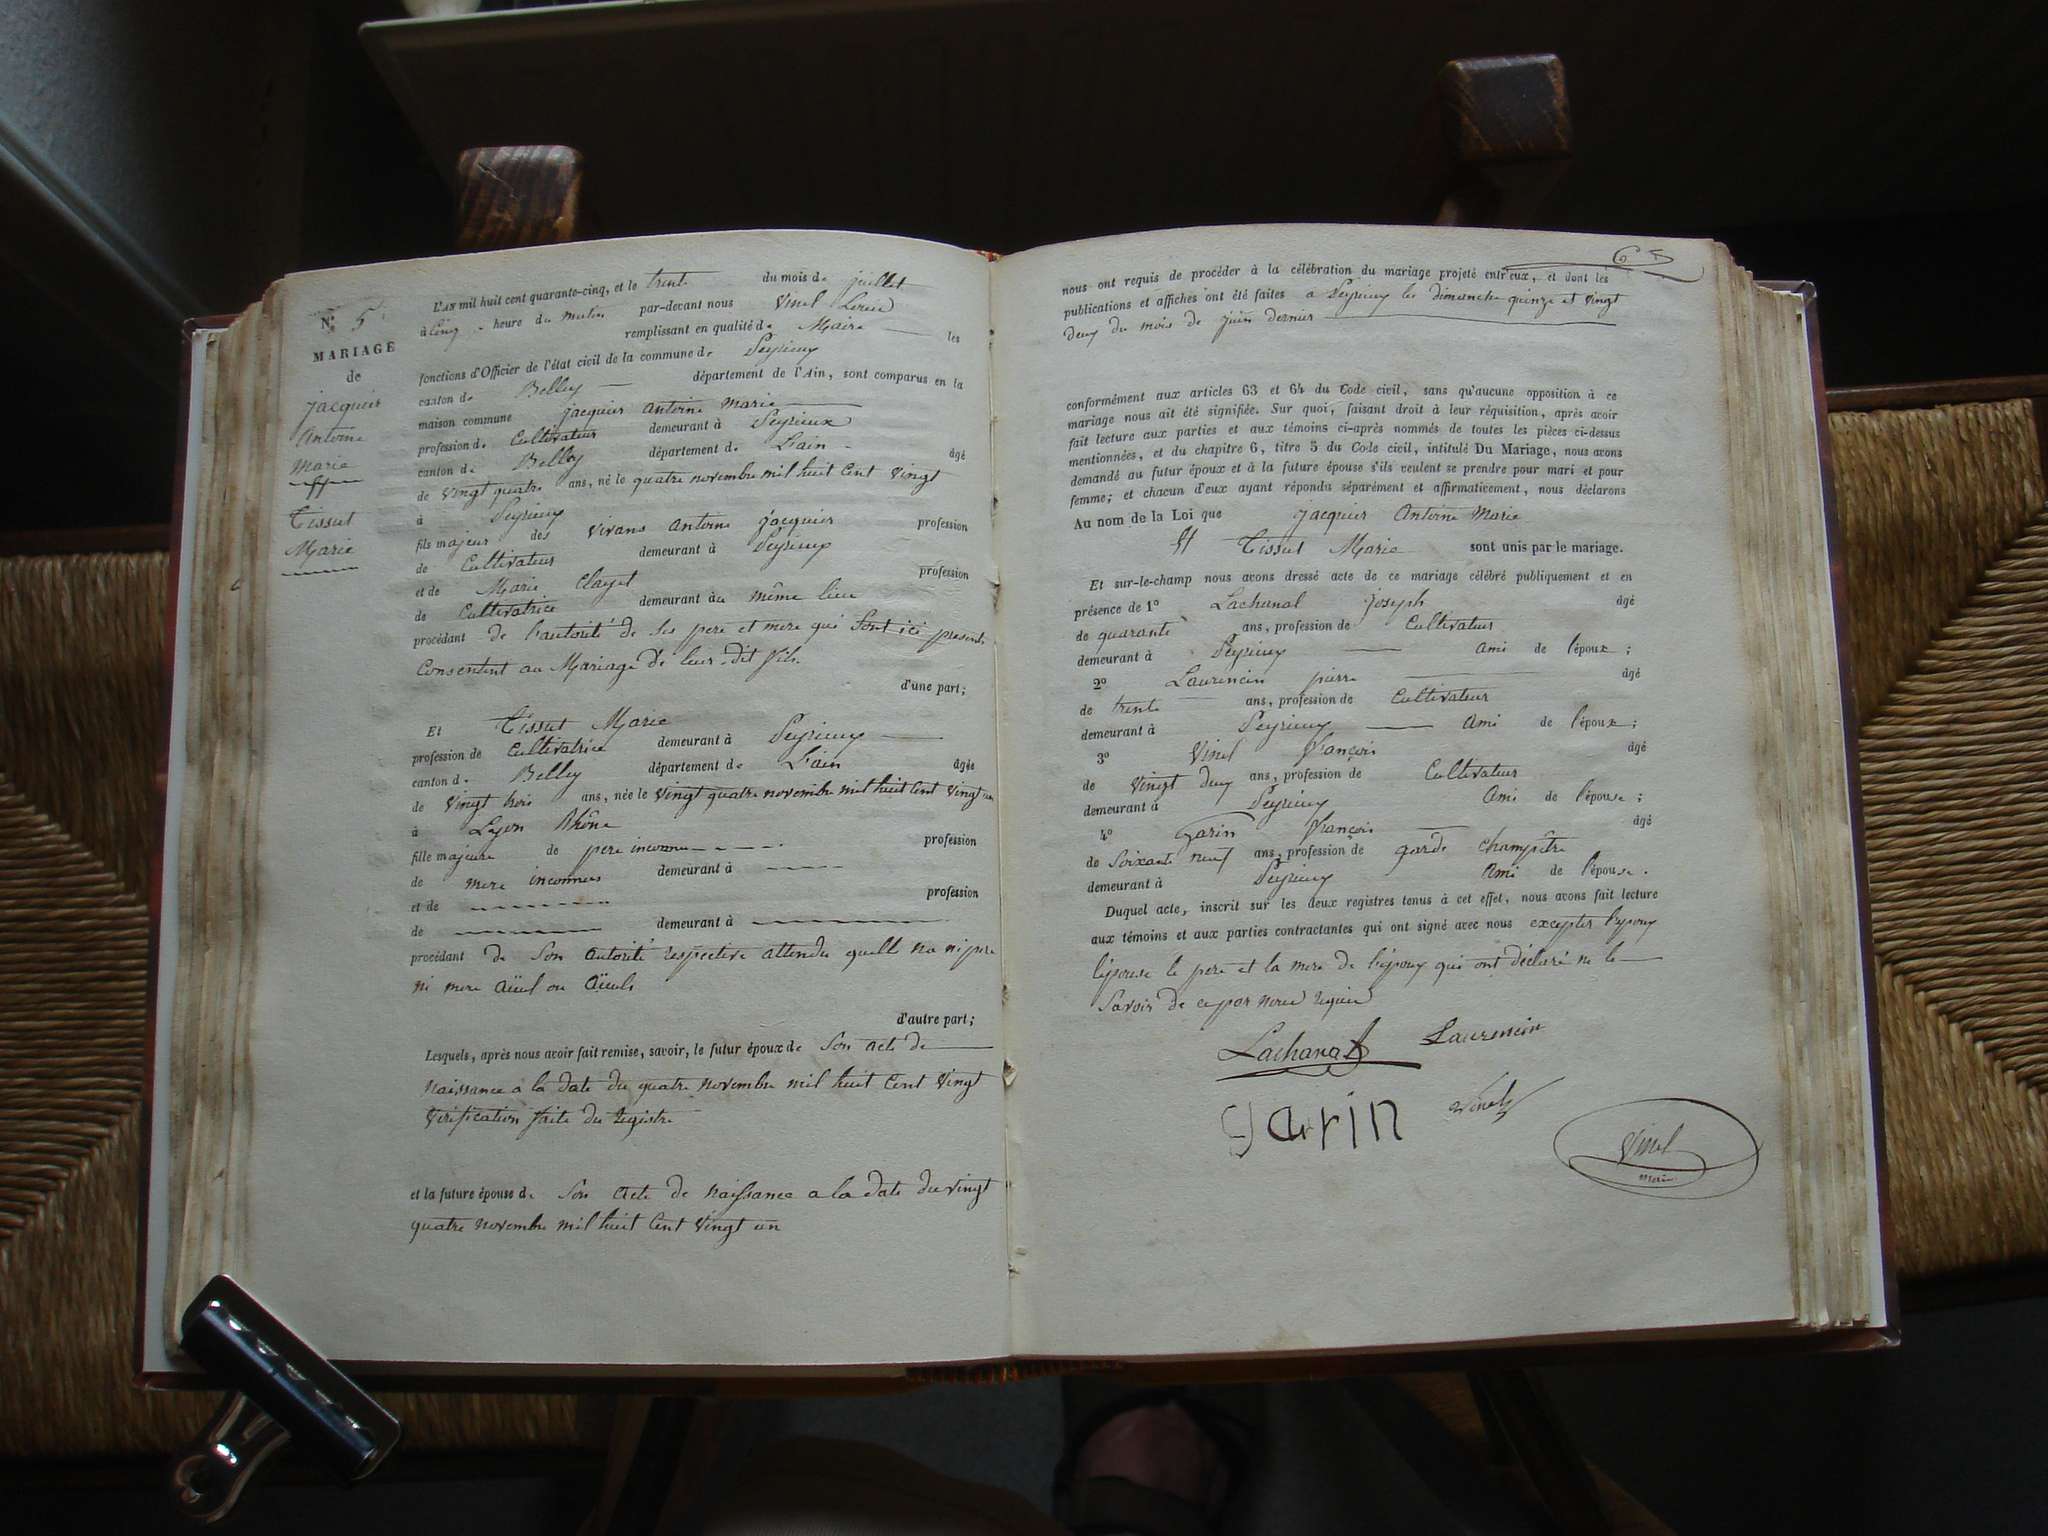 N.° 5
MARIAGE
de
jacquier
Antoine
Marie
Tissut
Marie
L'AN mil huit cent quarante-cinq, et le trente du mois de juillet
à cinq heure du matin par-devant nous Vinel
remplissant en qualité de Maire les
fonctions d'Officier de l'état civil de la commune de Peyrieux
canton de Belley département de l'Ain, sont comparus en la
maison commune jacquier Antoine Marie
profession de Cultivateur demeurant à Peyrieux
canton de Belley département de L'ain âgé
de Vingt quatre ans, né le quatre novembre mil huit Cent Vingt
à Peyrieux
fils majeur des vivans Antoine jacquier profession
de Cultivateur demeurant à Peyrieux
et de Marie Clayet profession
de Cultivatrice demeurant au même lieu
procédant de l'autorité de Ses pere et mere qui Sont ici présents
Consentent au Mariage de leur dit fils.
d'une part;
Et Tissut Marie
profession de Cultivatrice demeurant à Peyrieux
canton de Belley département de L'ain âgée
de Vingt trois ans, née le Vingt quatre novembre mil huit Cent Vingt un
à Lyon Rhône
fille majeure de pere inconnu profession
de mere inconnue demeurant à
et de profession
de demeurant à
procédant de Son autorité respective attendu quell na ni pere
ni mere aïeul ou aïeule
d'autre part;
Lesquels, après nous avoir fait remise, savoir, le futur époux de Son acte de
Naissance à la date du quatre novembre mil huit Cent Vingt
Vérification faite du registre
et la future épouse de Son acte de naissance a la date du vingt
quatre novembre mil huit Cent Vingt un
65
nous ont requis de procéder à la célébration du mariage projeté entr'eux, et dont les
publications et affiches ont été faites a Peyrieux les dimanche quinze et vingt
deux du mois de juin dernier
conformément aux articles 63 et 64 du Code civil, sans qu'aucune opposition à ce
mariage nous ait été signifiée. Sur quoi, faisant droit à leur réquisition, après avoir
fait lecture aux parties et aux témoins ci-après nommés de toutes les pièces ci-dessus
mentionnées, et du chapitre 6, titre 5 du Code civil, intitulé Du Mariage, nous avons
demandé au futur époux et à la future épouse s'ils veulent se prendre pour mari et pour
femme; et chacun d'eux ayant répondu séparément et affirmativement, nous déclarons
Au nom de la Loi que jacquier Antoine Marie
Et Tissut Marie sont unis par le mariage.
Et sur-le-champ nous avons dressé acte de ce mariage célébré publiquement et en
présence de 1° Lachanal joseph âgé
de quarante ans, profession de Cultivateur
demeurant à Peyrieux Ami de l'époux;
2° Laurencin pierre âgé
de trente ans, profession de Cultivateur
demeurant à Peyrieux Ami de l'époux;
3° Vinel François âgé
de Vingt deux ans, profession de Cultivateur
demeurant à Peyrieux Ami de l'épouse;
4° Garin François âgé
de Soixante neuf ans, profession de garde Champêtre
demeurant à Peyrieux Ami de l'épouse.
Duquel acte, inscrit sur les deux registres tenus à cet effet, nous avons fait lecture
aux témoins et aux parties contractantes qui ont signé avec nous excepter l'époux
l'épouse le pere et la mere de l'époux qui ont déclaré ne le
Savoir de ce par nous requis
Lachanal Laurencin
garin Vinel
Vinel
maire